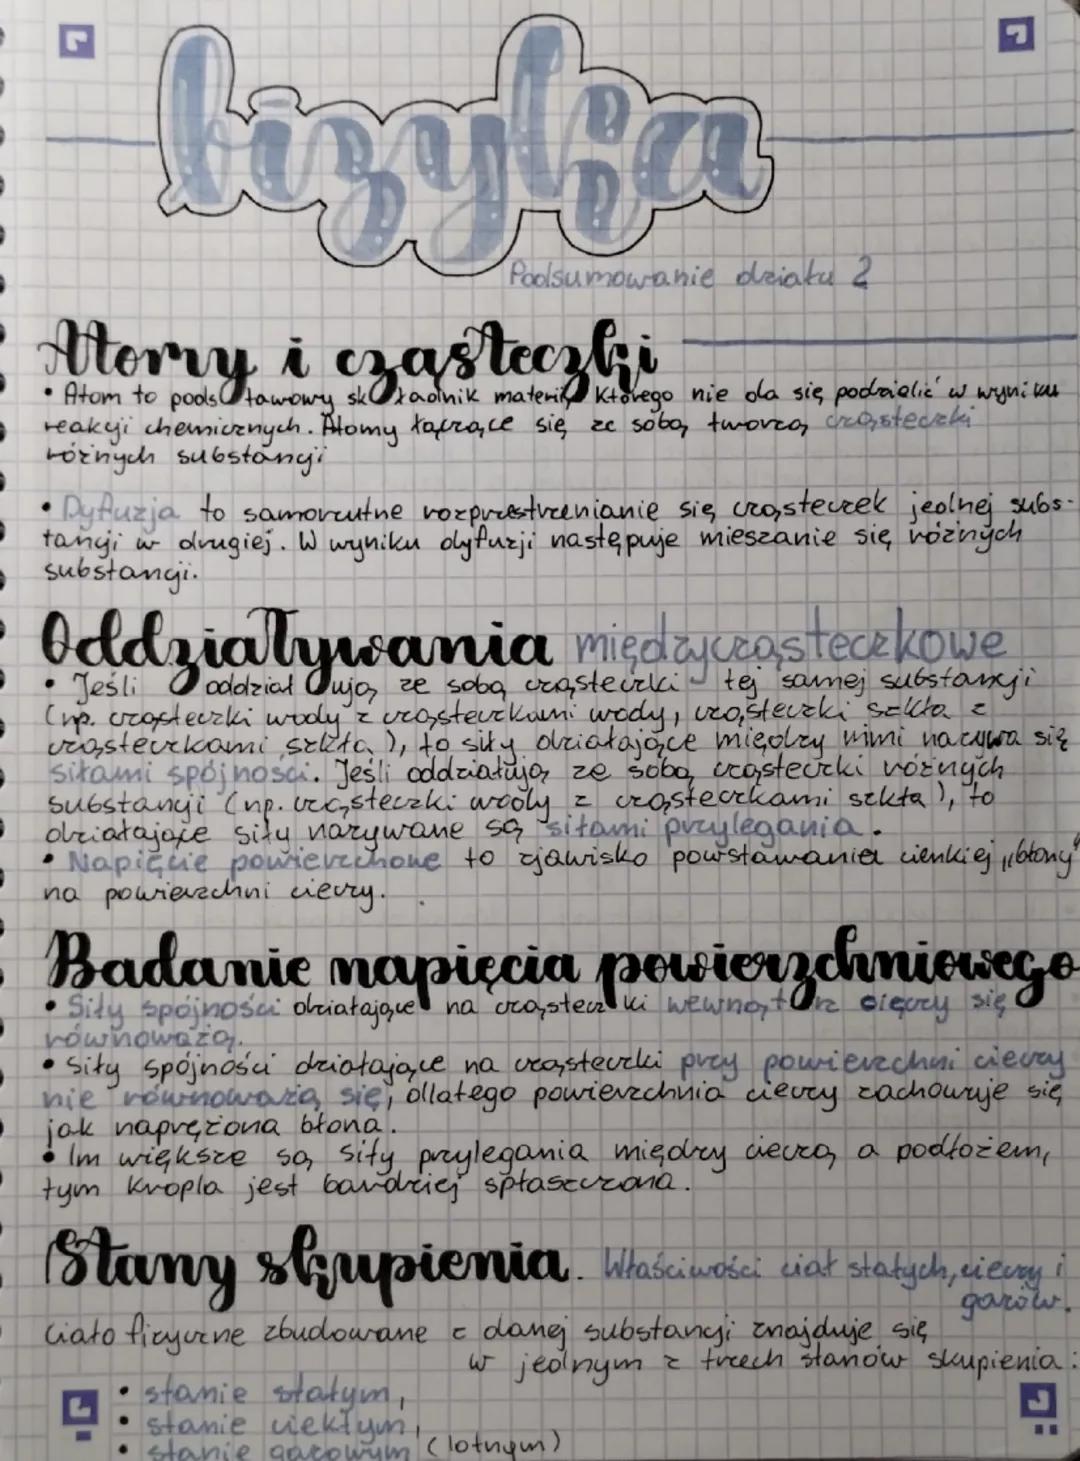 fizyka
Podsumowanie działu 2
Atomy i cząsteczki
• Atom to podstawowy składnik materii, którego nie da się podzielić w wyniku
reakcji chemicznych. Atomy łączące się ze sobą tworzą cząsteczki
różnych substancji
• Dyfuzja to samorzutne rozprzestrzenianie się cząsteczek jednej subs-
tancji w drugiej. W wyniku dyfuzji następuje mieszanie się różnych
substancji.
Oddziaływania międzycząsteczkowe
• Jeśli oddziałują ze sobą cząsteczki tej samej substancji
(np. cząsteczki wody z cząsteczkami wody, cząsteczki szkła z
cząsteczkami szkła), to siły działające między nimi nazywa się
siłami spójności. Jeśli oddziałują ze sobą cząsteczki różnych
substancji (np. cząsteczki wody z cząsteczkami szkła), to
działające siły nazywane są siłami przylegania.
• Napięcie powierzchone to zjawisko powstawania cienkiej „błony"
na powierzchni cieczy.
Badanie napięcia powierzchniowego
• Siły spójności działające na cząsteczki wewnątrz cieczy się
równoważą.
• Siły spójności działające na cząsteczki przy powierzchni cieczy
nie równoważą się, dlatego powierzchnia cieczy zachowuje się
jak naprężona błona.
• Im większe są siły przylegania między cieczą a podłożem,
tym kropla jest bardziej spłaszczona.
Stany skupienia. Właściwości ciał stałych, cieczy i
gazów.
Ciało fizyczne zbudowane z danej substancji znajduje się
w jednym z trzech stanów skupienia:
• stanie stałym,
• stanie ciekłym,
• stanie gazowym (lotnym)